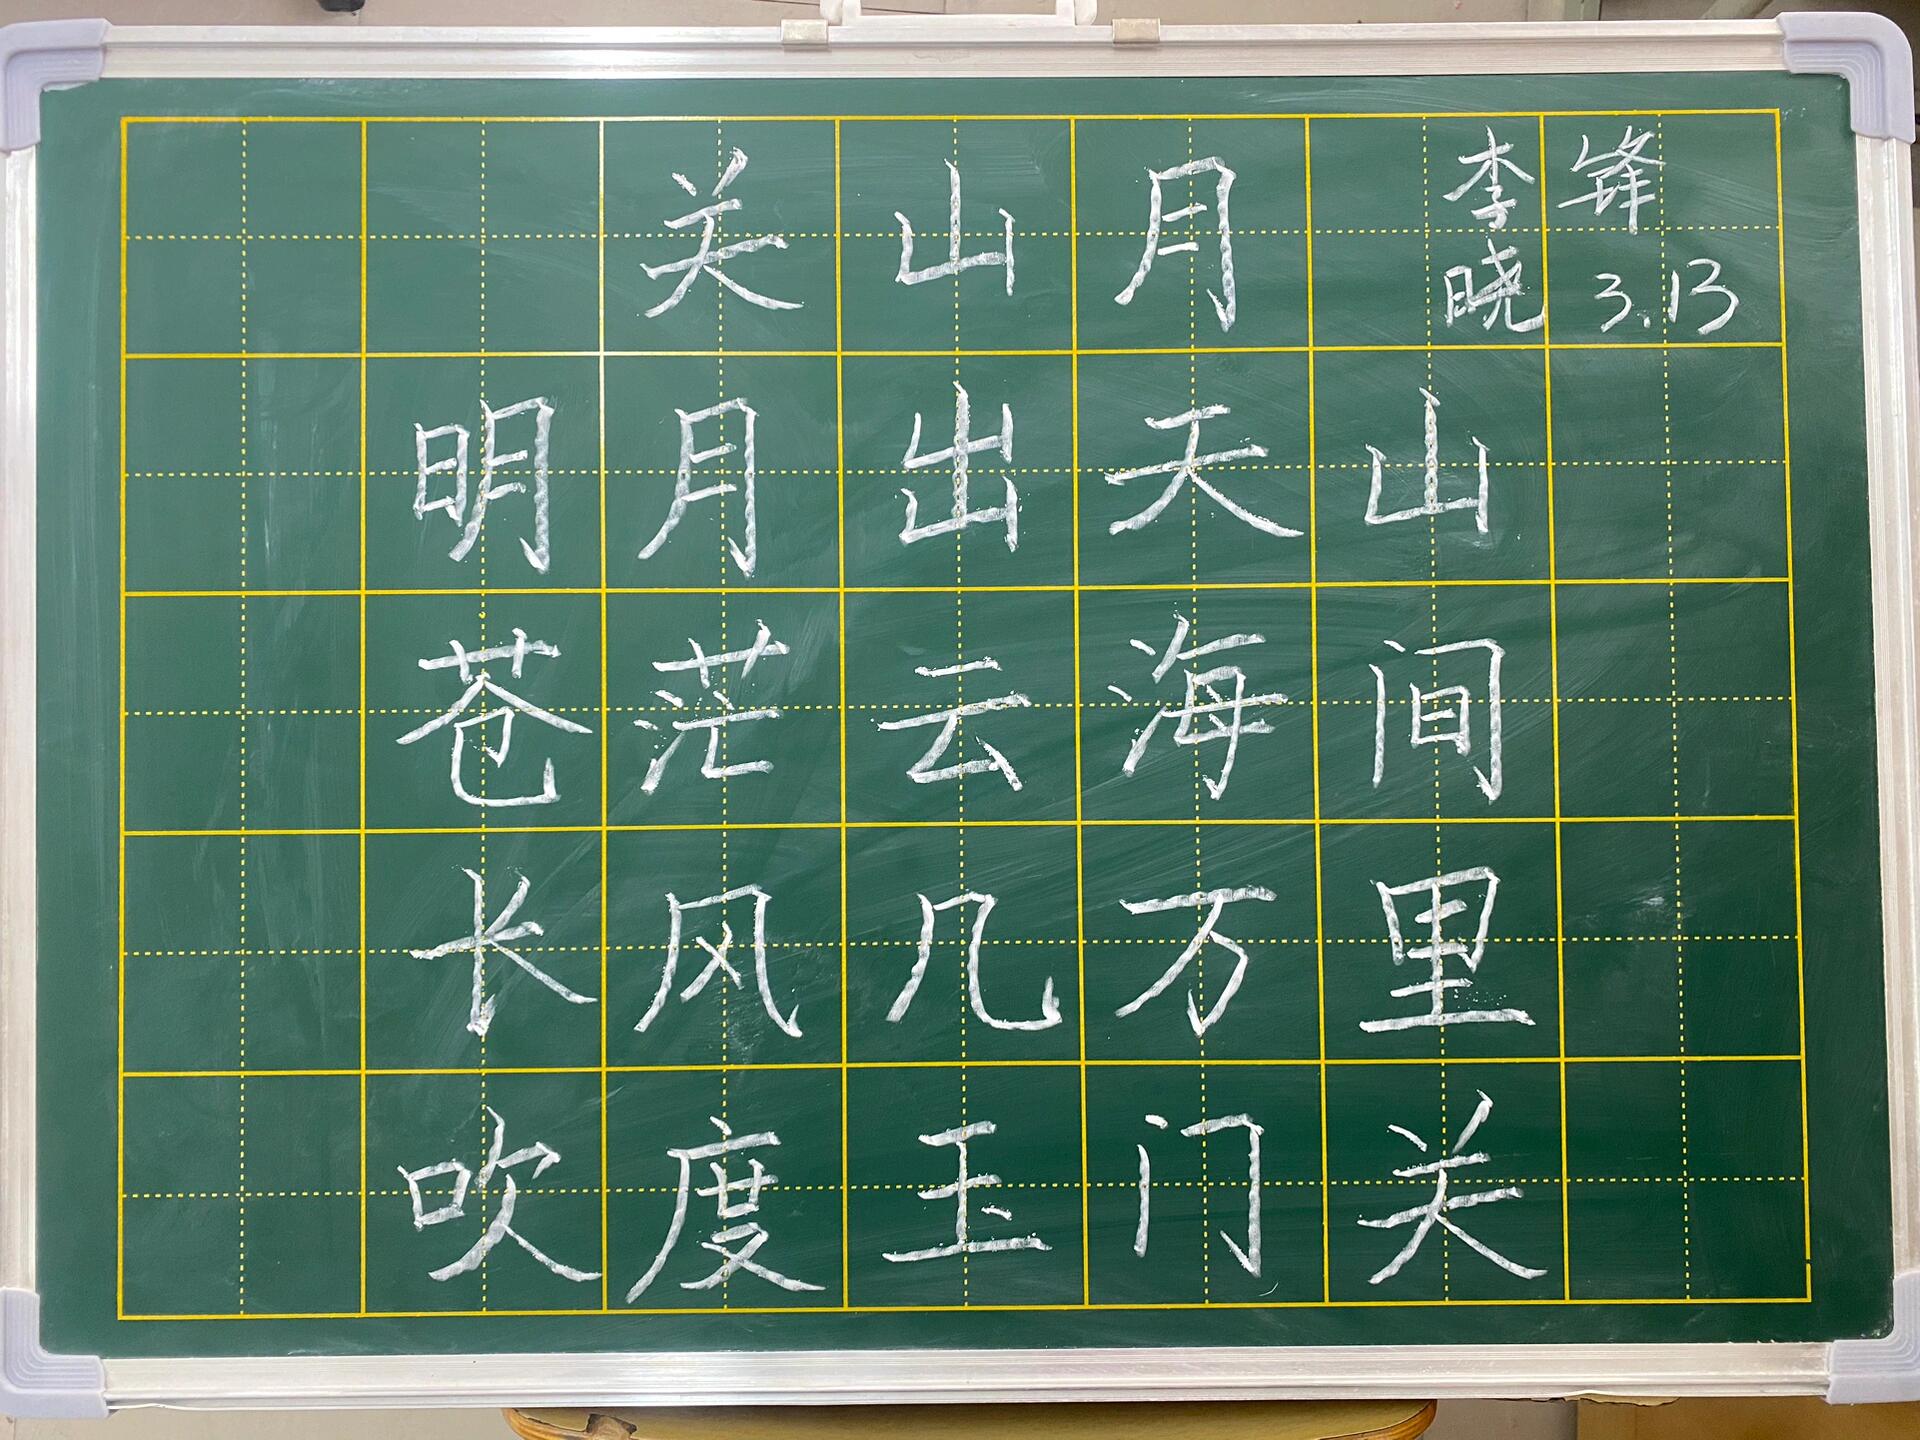 关山月
李晓锋
3.13
明月出天山
苍茫云海间
长风几万里
吹度玉门关